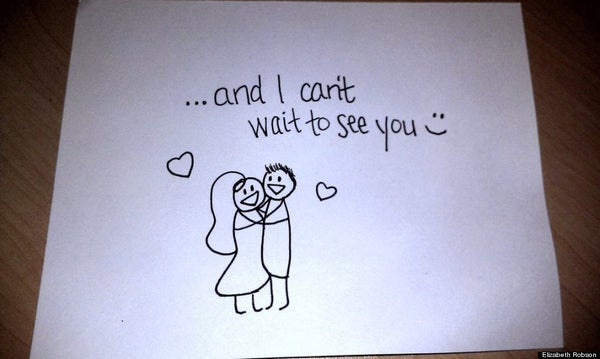 ...and I can't
wait to see you :)
Elizabeth Robson